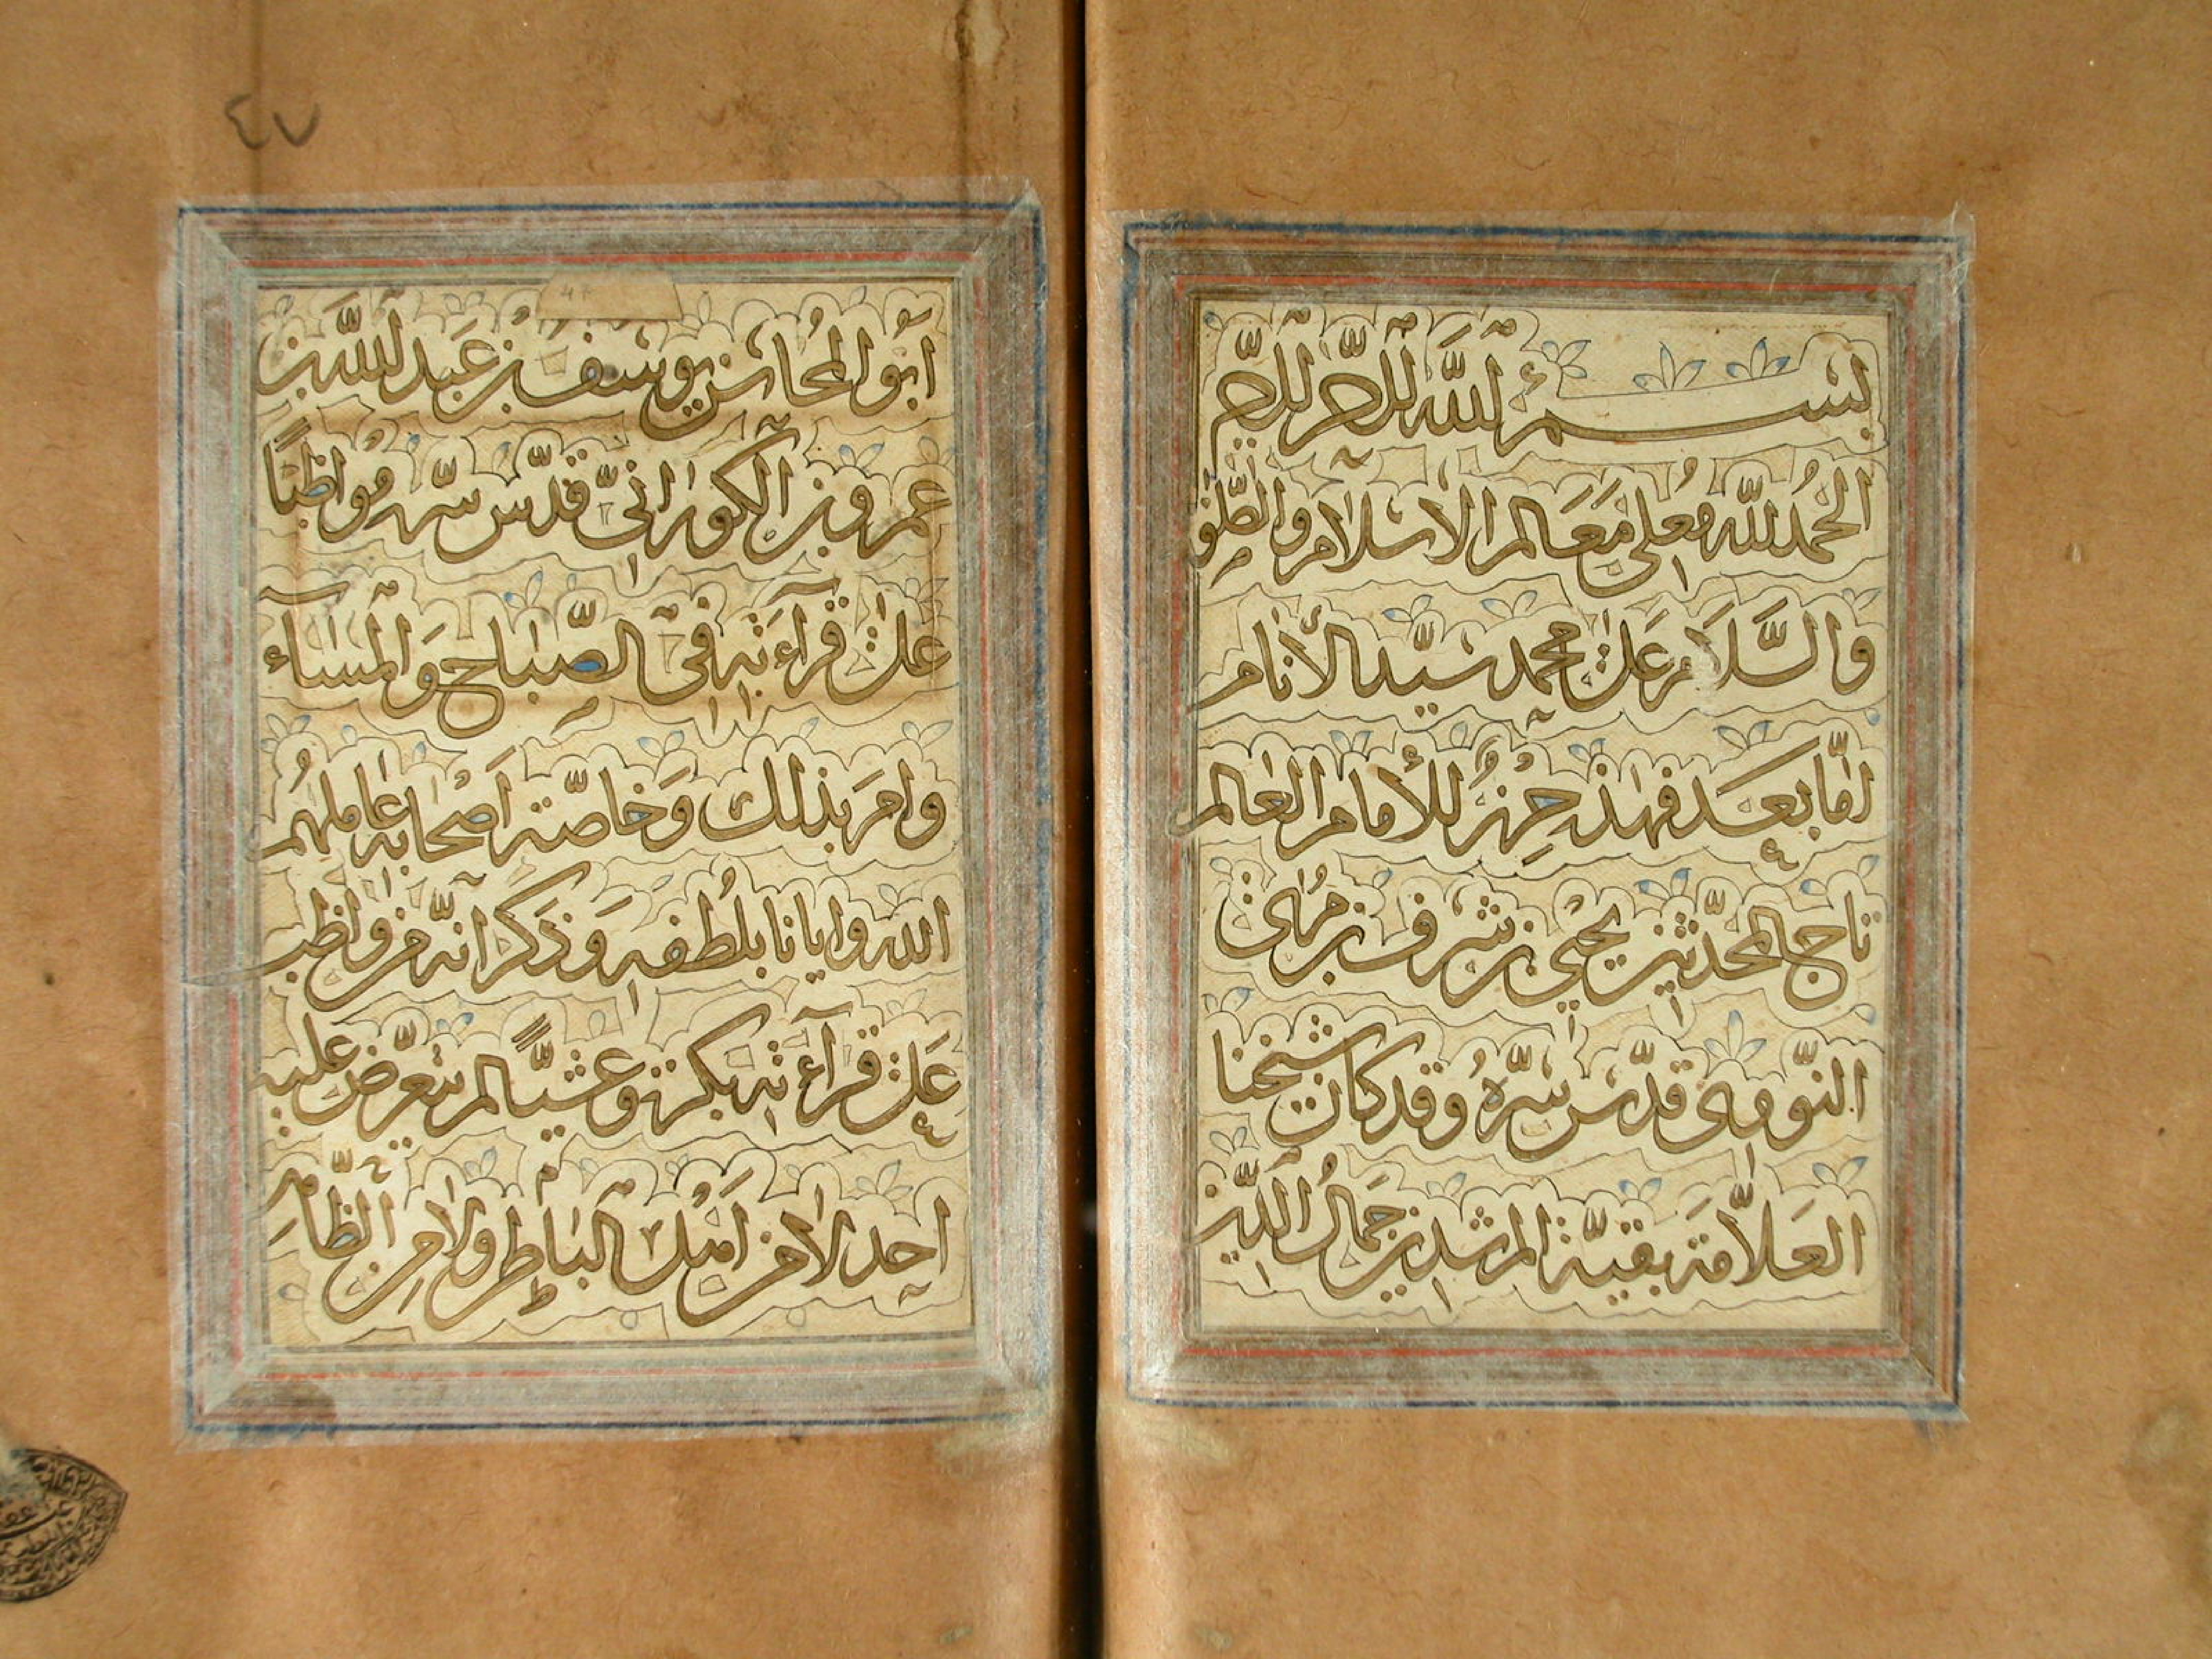 بسم الله الرحمن الرحيم
الحمد لله معلى معالم الاسلام والصلوة
والسلام على محمد سيد الأنام
اما بعد فهذا حزب للأمام العالم
تاج المحدثين يحيى بن شرف بن مرى
النووى قدس سره وقد كان شيخنا
العلامة بقية المرشدين جمال الدين
٤٧
ابو المحاسن يوسف بن عبد الله بن
عمر بن الكورانى قدس سره مواظبًا
على قرآءته فى الصباح والمسآء
وامر بذلك وخاصة اصحابه عاملهم
الله وايانا بلطفه وذكر انه من واظب
على قرآءته بكرة وعشيًا لم يتعرض عليه
احد لا من اهل الباطن ولا من الظاهر